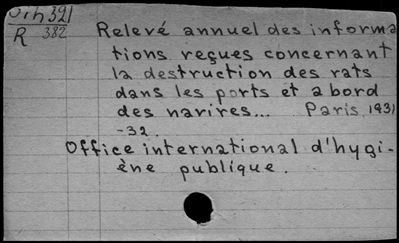 Oih 321
R 382
Relevé annuel des informa
tions reçues concernant
la destruction des rats
dans les ports et a bord
des narires... Paris, 1931
-32.
Office international d'hygi-
ène publique.